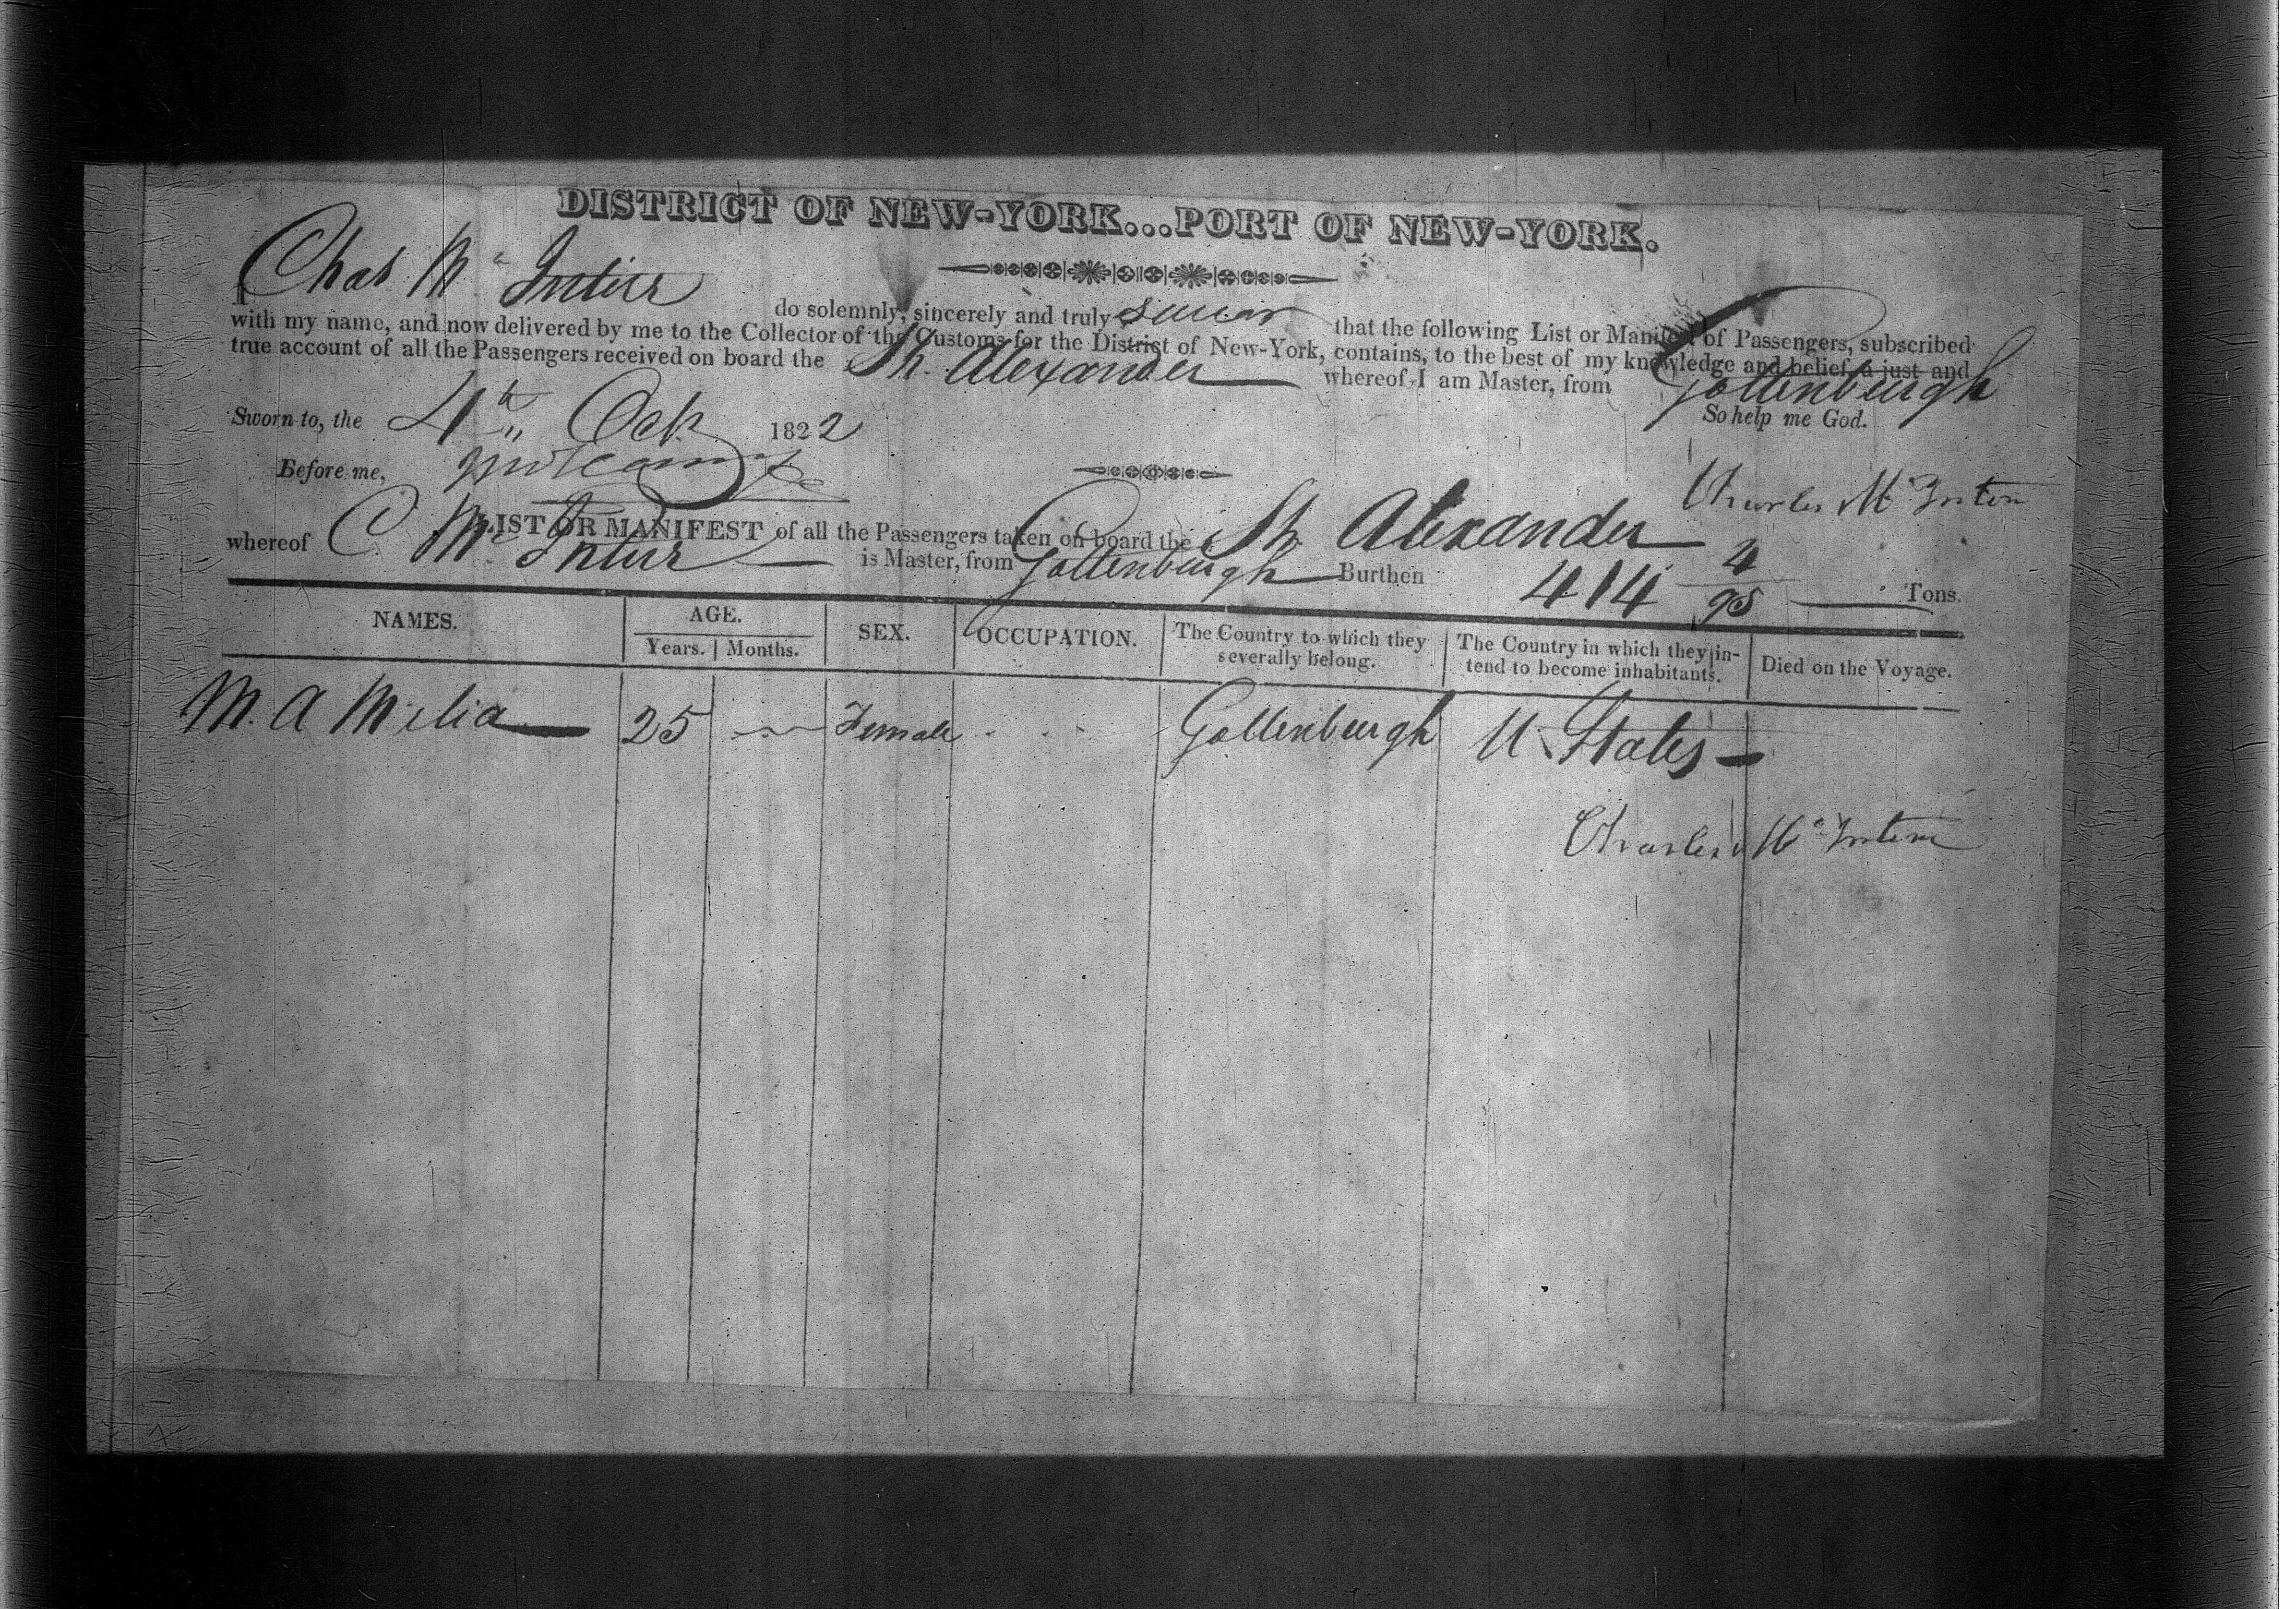 DISTRICT OF NEW-YORK...PORT OF NEW-YORK.
I Chas Mc Intier do solemnly, sincerely and truly swear that the following List or Manifest of Passengers, subscribed
with my name, and now delivered by me to the Collector of the Customs for the District of New-York, contains, to the best of my knowledge and belief, a just and
true account of all the Passengers received on board the Sh. Alexander whereof I am Master, from Gottenburgh
Sworn to, the 4th Oct 1822 So help me God.
Before me,
Charles Mc Intire
LIST OR MANIFEST of all the Passengers taken on board the Sh. Alexander
whereof C Mc Intier is Master, from Gottenburgh Burthen 414 4/95 Tons.
NAMES. AGE. SEX. OCCUPATION. The Country to which they severally belong. The Country in which they intend to become inhabitants. Died on the Voyage.
Years. Months.
M. A Melia 25 Female Gottenburgh U States
Charles Mc Intire